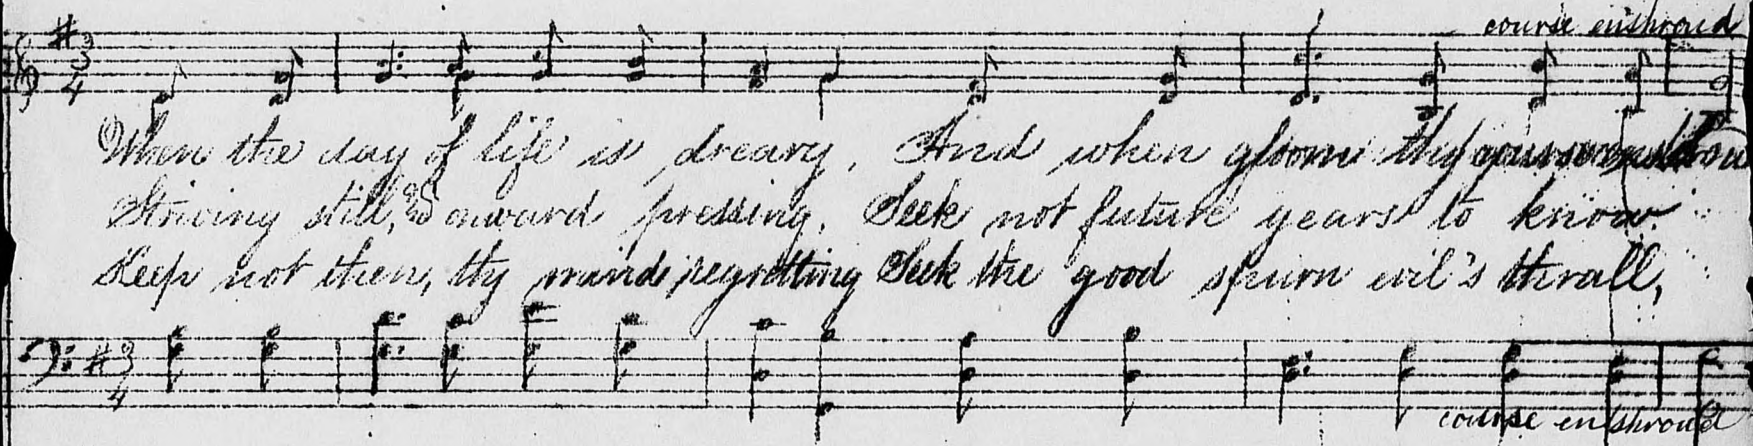 course enshroud
3
4
When the day of life is dreary, And when gloom thy course enshrou
Striving still, & onward pressing, Seek not future years to know.
Keep not then, thy minds regretting Seek the good spurn evil's thrall,
3
4
course enshroud